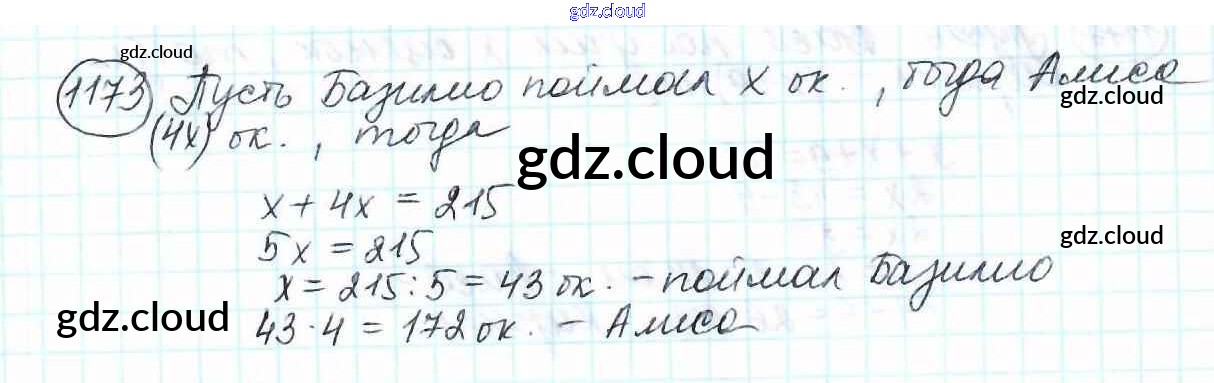 gdz.cloud
gdz.cloud
1173 Пусть Базилио поймал x ок., тогда Алиса
gdz.cloud
(4x) ок., тогда
gdz.cloud
x + 4x = 215
5x = 215
gdz.cloud
x = 215 : 5 = 43 ок. – поймал Базилио
gdz.cloud
43 · 4 = 172 ок. – Алиса